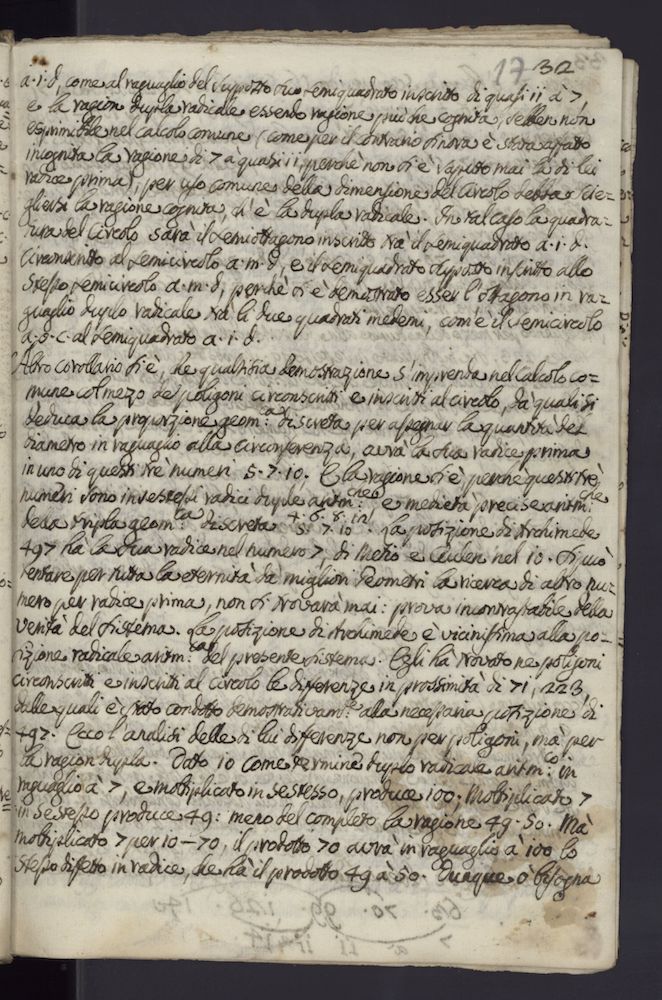 17 32
a. i. d, come al raguaglio del supposto suo semiquadrato inscritto di quasi 11 à 7,
e la ragion dupla radicale essendo ragione più che cognita, sebben non
esprimibile nel calcolo comune (come per il contrario sinora è stata affatto
incognita la ragione di 7 a quasi 11, perchè non si è saputo mai la di lui
radice prima), per uso comune della dimensione del Circolo debba scie=
gliersi la ragione cognita, ch'è la dupla radicale. In tal caso la quadra=
tura del Circolo sarà il semiottagono inscritto trà il semiquadrato a. i. d.
circonscritto al semicircolo a. m. d, e il semiquadrato supposto inscritto allo
stesso semicircolo a. m. d, perchè si è demostrato esser l'ottagono in ra=
guaglio duplo radicale trà li due quadrati medemi, com'è il semicircolo
a. g. c. al semiquadrato a. i. d.
Altro corollario si è, che qualsisia demostrazione s'imprenda nel calcolo co=
mune col mezo de' poligoni circonscritti e inscritti al circolo, da' quali si
deduca la proporzione geom:ca discreta per assegnar la quantità del
diametro in raguaglio alla circonferenza, avrà la sua radice prima
in uno di questi tré numeri 5. 7. 10. E la ragione si è, perche questi trè
numeri sono in se stessi radici duple aritm:che e medietà precise aritm:che
della tripla geom:ca discreta 4. 6. 8. in 5. 7. 10. La posizione di Archimede
497 ha la sua radice nel numero 7, di Metio e Ceulen nel 10. Si può
tentare per tutta la eternità da' migliori Geometri la ricerca di altro nu=
mero per radice prima, non si trovarà mai: prova incontrastabile della
verità del sistema. La posizione di Archimede è vicinissima alla po=
sizione radicale aritm:ca del presente sistema. Egli hà trovato ne' poligoni
circonscritti e inscritti al circolo le differenze in prossimità di 71, 223,
dalle quali è stato condotto demostrativam:te alla necessaria posizione di
497. Ecco l'analisi delle di lui differenze non per poligoni, mà per
la ragion dupla. Dato 10 come termine duplo radicale aritm:co in
raguaglio à 7, e moltiplicato in se stesso, produce 100. Moltiplicato 7
in se stesso produce 49: meno del completo la ragione 49. 50. Mà
moltiplicato 7 per 10 — 70, il prodotto 70 avrà in raguaglio à 100 lo
stesso difetto in radice, che hà il prodotto 49 à 50. Dunque ò bisogna